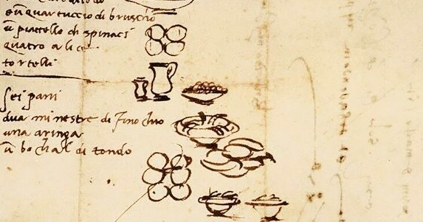 un quartuccio di bruscho
un piattello di spinaci
quatro alice
tortelli
sei pani
dua minestre di finochio
una aringa
un bochal di tondo